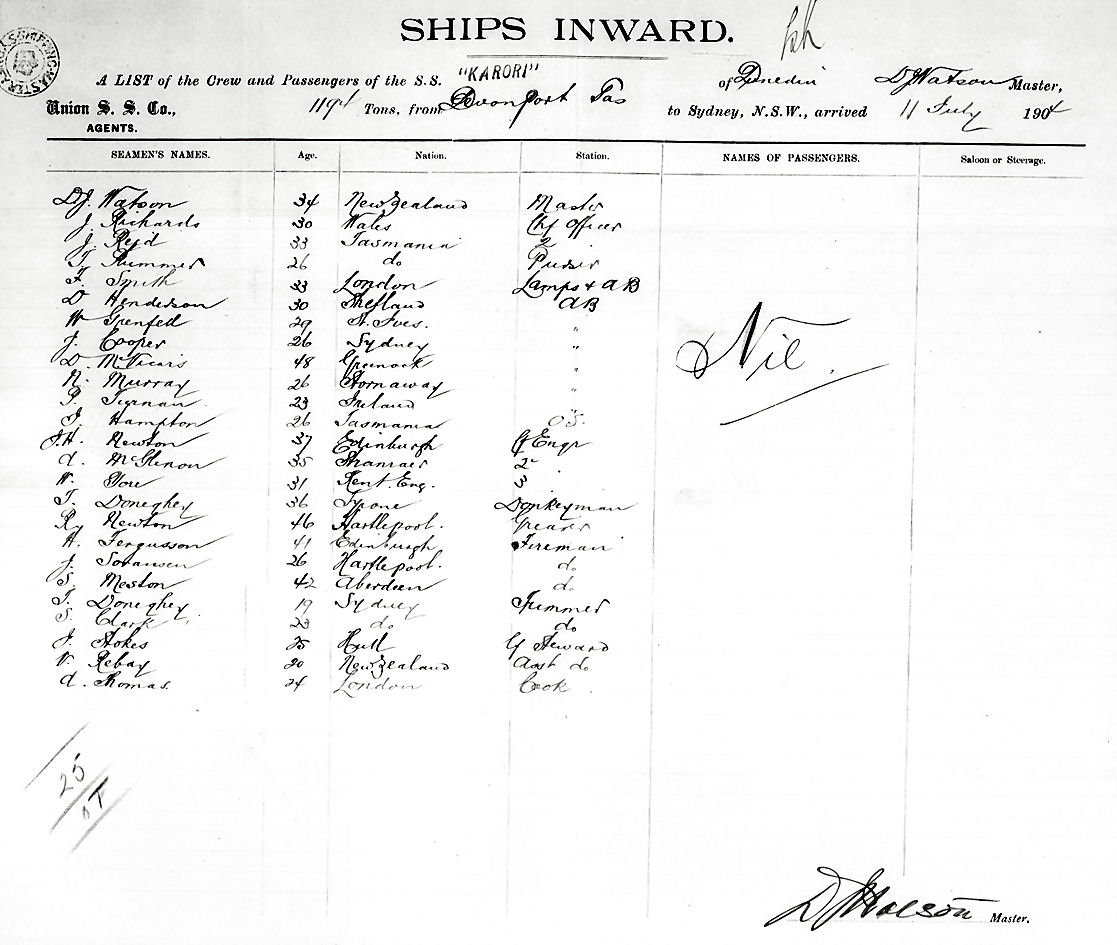 SHIPS INWARD.
A LIST of the Crew and Passengers of the S.S. "KARORI" of Dunedin D J Watson Master,
Union S. S. Co., 1194 Tons, from Devonport Tas to Sydney, N.S.W., arrived 11 July 1904
AGENTS.
SEAMEN'S NAMES. Age. Nation. Station. NAMES OF PASSENGERS. Saloon or Steerage.
D.J. Watson 34 New Zealand Master
J. Richards 30 Wales Chf Officer
J. Reid 33 Tasmania 2
T. Plummer 26 do Purser
F. Smith 33 London Lamps & AB
D Henderson 30 Shetland AB
W Grenfell 29 St. Ives. "
J. Cooper 26 Sydney "
D. McVicars 48 Greenock "
N. Murray 26 Stornaway "
P. Tiernan 23 Ireland "
J. Hampton 26 Tasmania O.S.
J.H. Newton 37 Edinburgh Cf Engr
A. McGlenon 35 Stranraer 2
W. 31 Kent. Eng. 3
T. Doneghey 36 Tyrone Donkeyman
Ry Newton 46 Hartlepool. Greaser
H. Fergusson 41 Edinburgh Fireman
J. Soransen 26 Hartlepool. do
S. Meston 42 Aberdeen do
T. Doneghey 19 Sydney Trimmer
S. Clark 23 do do
J. Stokes 25 Hull Cf Steward
V. Rebay 20 New Zealand Asst do
A. Thomas. 24 London Cook.
Nil.
25
D J Watson Master.